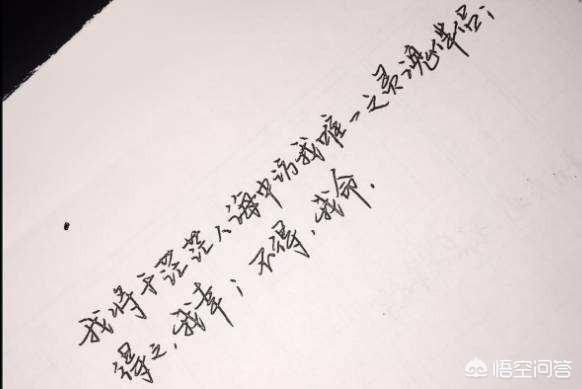 我将于茫茫人海中访我唯一之灵魂伴侣；
得之，我幸；不得，我命．
悟空问答